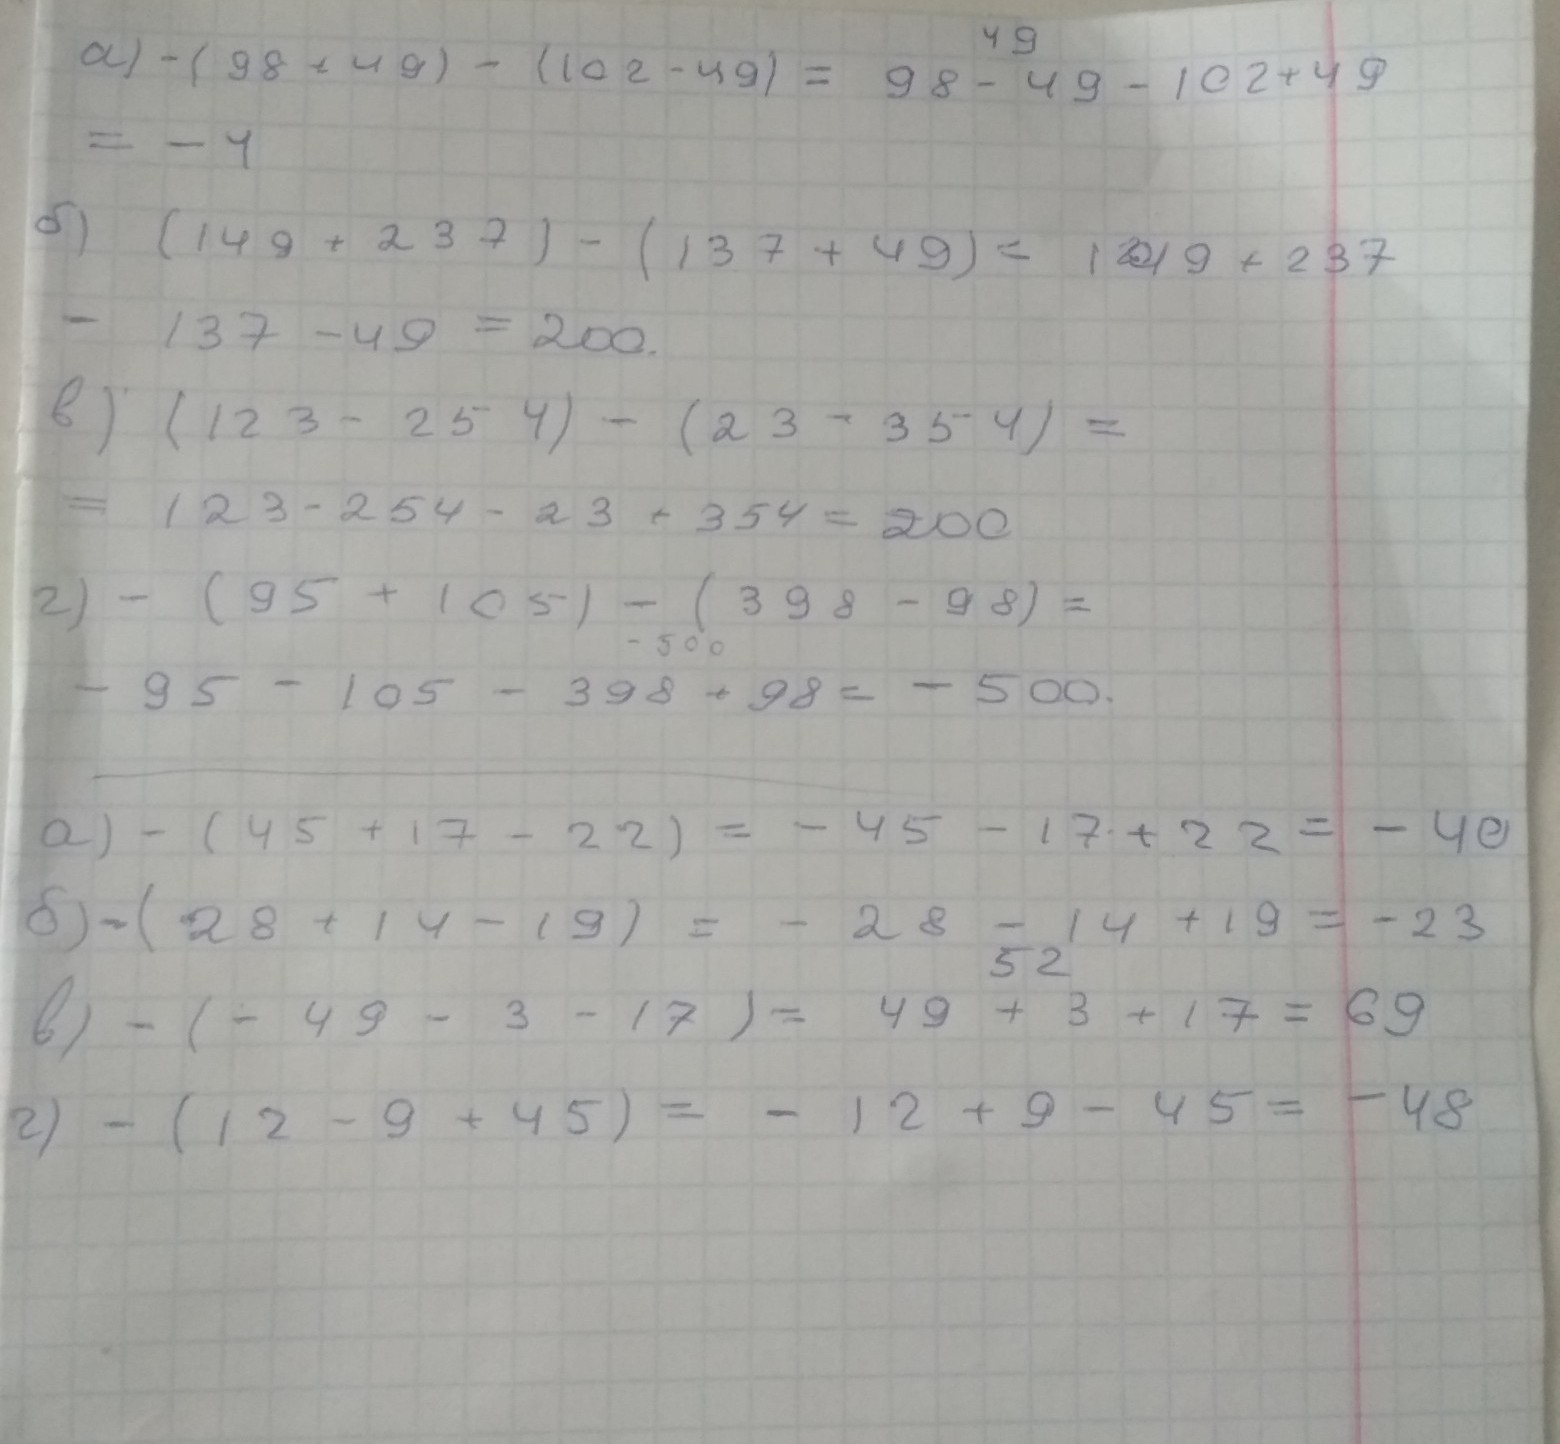 49
а) -(98+49) - (102-49) = 98-49-102+49
= -4
б) (149+237) - (137+49) = 149+237
- 137-49 = 200.
в) (123-254) - (23-354) =
= 123-254-23+354 = 200
г) - (95+105) - (398-98) =
-500
- 95 - 105 - 398 + 98 = - 500.
а) - (45+17-22) = - 45 - 17 + 22 = - 40
б) -(28+14-19) = - 28 - 14 + 19 = -23
52
в) - (- 49 - 3 - 17) = 49 + 3 + 17 = 69
г) - (12-9+45) = - 12 + 9 - 45 = -48